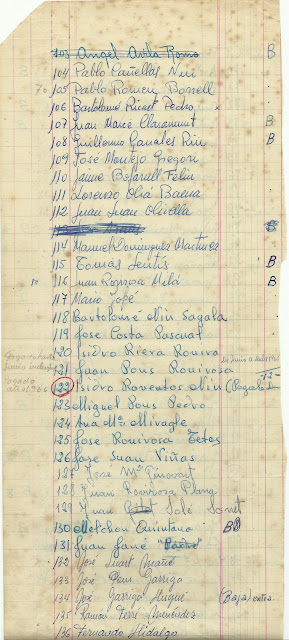 103 Angel Avila Roms B
104 Pablo Cañellas Nin
70 105 Pablo Romeu Borrell
106 Bartolomé Ricart Pedro
107 Juan Marcé Claramunt B
108 Guillermo Canales Riu B
109 José Montejo Gregori
110 Jaime Bofarull Feliu
111 Lorenzo Oliá Baena
112 Juan Juan Olivella
B
114 Manuel Dominguez Martinez
115 Tomás Sentis B
116 Juan Milá B
117 Mario José
118 Bartolomé Nin Sagala
119 Jose Costa Pascual
120 Isidro Riera Rovira
121 Juan Pons Rovirosa
122 Isidro Raventos Nin (Pagado
123 Miguel Pons Pedro
124 Ana Mª Miragle
125 Jose Rovirosa Tetas
126 Jose Juan Viñas
127 Jose Mª
128 Juan Rovirosa Plana
129 Juan Solé Sonet
130 Melchor Quintana B
131 Juan Gané
132 José Suart
133 José Garriga
134 José Garriga Huguet (Baja) antes
135 Ramón Ferré
136 Fernando Hidalgo